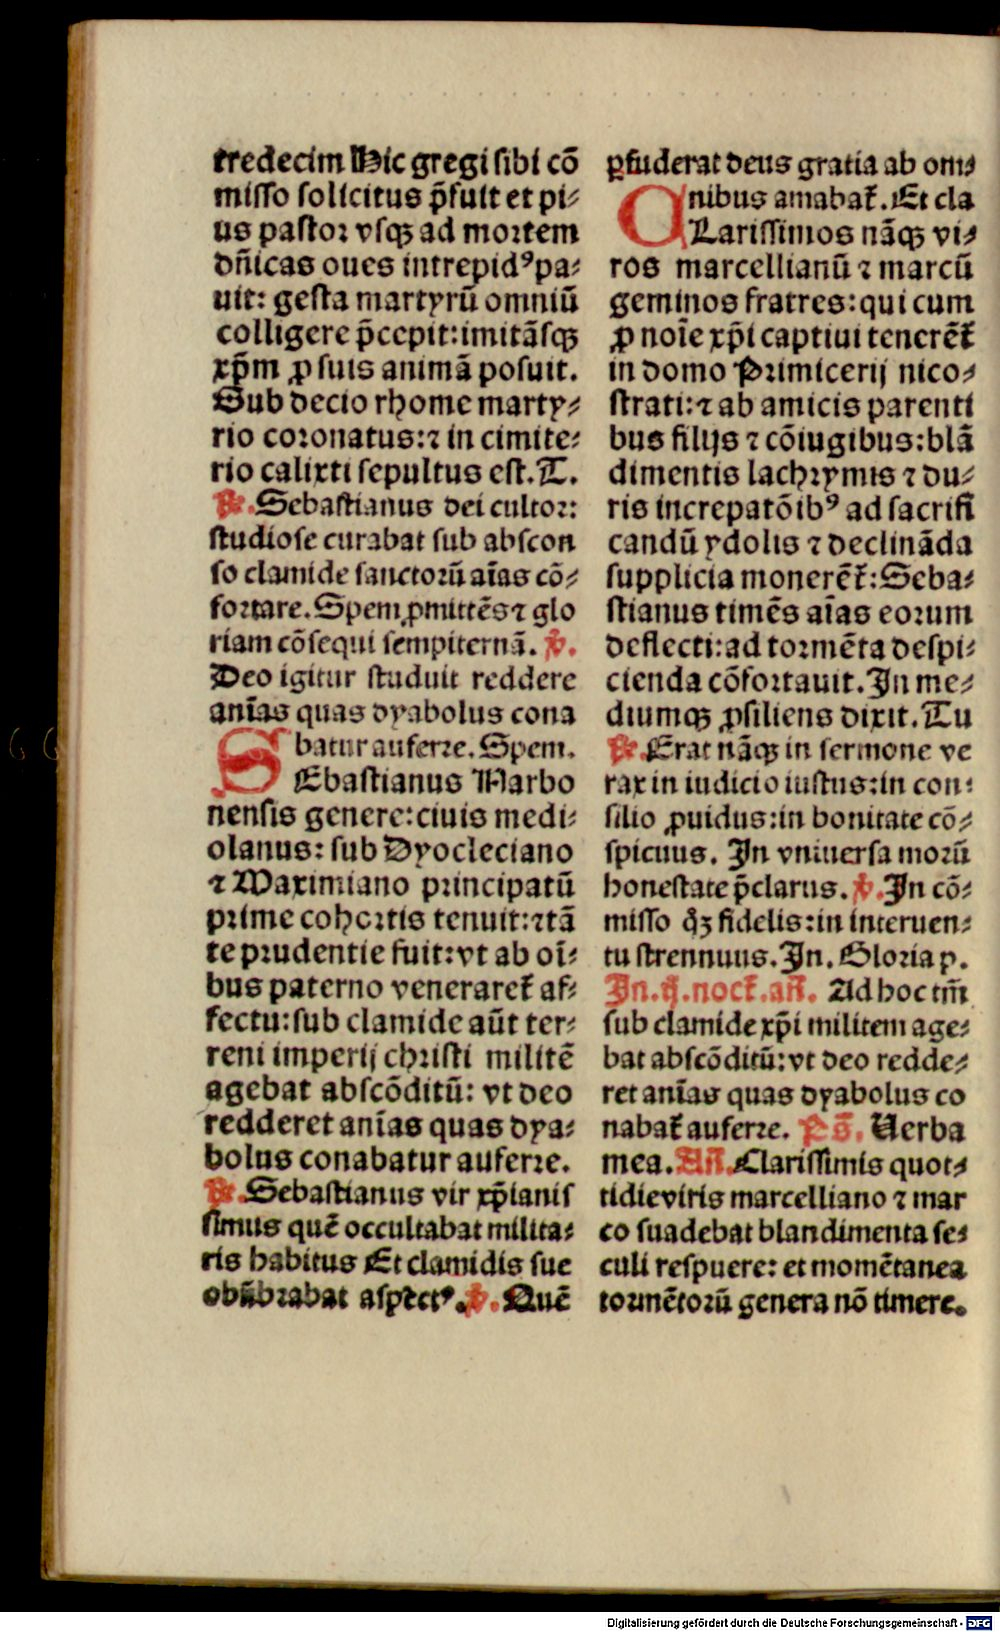 tredecim Hic gregi sibi cō
misso solicitus p̄fuit et pi⸗
us pastoꝛ vsqꝫ ad moꝛtem
dn̄icas oues intrepidꝰ pa⸗
uit: gesta martyrū omniū
colligere p̄cepit: imitāsqꝫ
xp̄m ꝓ suis animā posuit.
Sub decio rhome marty⸗
rio coꝛonatus: ⁊ in cimite⸗
rio calixti sepultus est. T.
℟. Sebastianus dei cultoꝛ:
studiose curabat sub abscon
so clamide sanctoꝛū aīas cō⸗
foꝛtare. Spem ꝓmittēs ⁊ glo
riam cōsequi sempiternā. ℣.
Deo igitur studuit reddere
anīas quas dyabolus cona
batur auferre. Spem.
SEbastianus Narbo
nensis genere: ciuis medi⸗
olanus: sub Dyocleciano
⁊ Maximiano principatū
prime cohoꝛtis tenuit: ⁊ tā
te prudentie fuit: vt ab oī⸗
bus paterno veneraret᷑ af⸗
fectu: sub clamide aūt ter⸗
reni imperij christi militē
agebat abscōditū: vt deo
redderet anīas quas dya⸗
bolus conabatur auferre.
℟. Sebastianus vir xp̄ianis
simus quē occultabat milita⸗
ris habitus Et clamidis sue
obūbrabat aspectꝰ. ℣. Quē
ꝑfuderat deus gratia ab om⸗
nibus amabat᷑. Et cla
CLarissimos nāqꝫ vi⸗
ros marcellianū ⁊ marcū
geminos fratres: qui cum
ꝓ noīe xp̄i captiui tenerēt᷑
in domo Primicerij nico⸗
strati: ⁊ ab amicis parenti
bus filijs ⁊ cōiugibus: blā
dimentis lachrymis ⁊ du⸗
ris increpatōibꝰ ad sacrifi
candū ydolis ⁊ declināda
supplicia monerēt᷑: Seba⸗
stianus timēs aīas eoꝛum
deflecti: ad toꝛmēta despi⸗
cienda cōfoꝛtauit. In me⸗
diumqꝫ ꝓsiliens dixit. Tu
℟. Erat nāqꝫ in sermone ve
rax in iudicio iustus: in con⸗
silio ꝓuidus: in bonitate cō⸗
spicuus. In vniuersa moꝛū
honestate p̄clarus. ℣. In cō⸗
misso qꝫ fidelis: in interuen⸗
tu strennuus. In. Gloꝛia p.
In. ij. noct᷑. añ. Ad hoc tm̄
sub clamide xp̄i militem age⸗
bat abscōditū: vt deo redde⸗
ret anīas quas dyabolus co
nabat᷑ auferre. Ps̄. Verba
mea. Añ. Clarissimis quot⸗
tidie viris marcelliano ⁊ mar
co suadebat blandimenta se⸗
culi respuere: et momētanea
toꝛmētoꝛū genera nō timere.
Digitalisierung gefördert durch die Deutsche Forschungsgemeinschaft - DFG